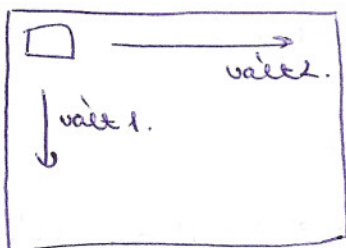 vált2.
vált 1.